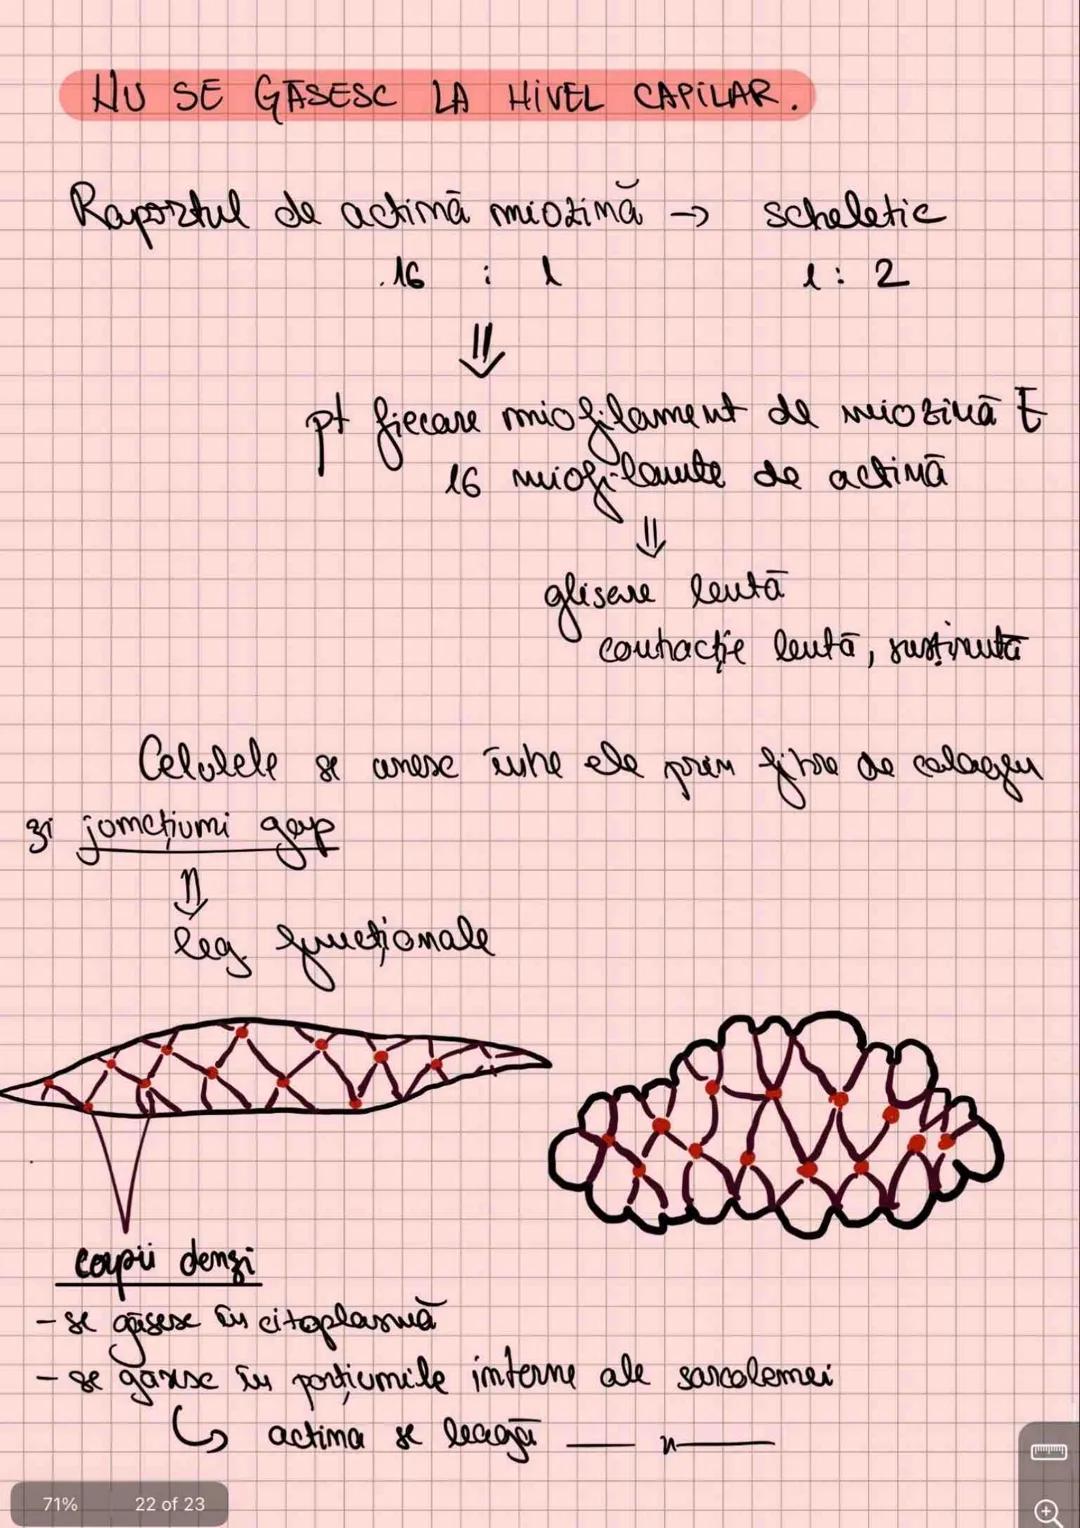 NU SE GĂSESC LA NIVEL CAPILAR.
Raportul de actină miozină → scheletic
16 : 1 1 : 2
⇓
pt fiecare miofilament de miozină E
16 miofilamte de actină
⇓
glisare lentă
contracție lentă, susținută
Celulele se unesc între ele prin fibre de colagen
și joncțiuni gap
⇓
leg funcționale
corpii denși
- se găsesc în citoplasmă
- se găsesc în porțiunile interne ale sarcolemei
↳ actina se leagă — n —
71% 22 of 23